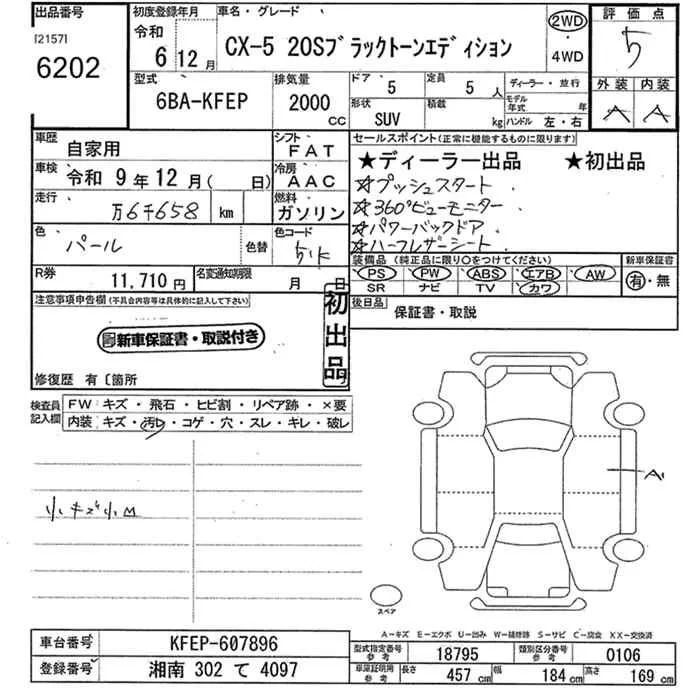 出品番号
[2157]
6202
初度登録年月
令和
6 12 月
車名・グレード
CX-5 20Sブラックトーンエディション
2WD
・
4WD
評価点
5
外装 内装
A A
型式
6BA-KFEP
排気量
2000
CC
ドア 5
定員 5 人
形状
SUV
積載
kg
ディーラー・並行
モデル年式 年
ハンドル 左・右
車歴
自家用
シフト
FAT
車検
令和 9 年 12 月 ( 日)
冷房
AAC
走行
万6千658 km
燃料
ガソリン
色
パール
色替
色コード
51K
R券
11,710 円
名変通知期限
月 日
セールスポイント(正常に機能するものに限ります)
★ディーラー出品 ★初出品
☆プッシュスタート
☆360°ビューモニター
☆パワーバックドア
☆ハーフレザーシート
装備品 (純正品に限り○をつけてください)
PS PW ABS エアB AW
SR ナビ TV カワ
新車保証書
有・無
後日品
保証書・取説
注意事項申告欄(不具合内容等は具体的に記入して下さい)
新車保証書・取説付き
初出品
修復歴 有〔箇所
検査員
記入欄
FW キズ・飛石・ヒビ割・リペア跡・×要
内装 キズ・汚レ・コゲ・穴・スレ・キレ・破レ
小キズ小凹
A1
スペア
A-キズ E-エクボ U-凹み W-補修跡 S-サビ C-腐食 XX-交換済
車台番号
KFEP-607896
登録番号
湘南 302 て 4097
型式指定番号
参考
18795
類別区分番号
参考
0106
車庫証明用
参考
長さ 457 cm
幅 184 cm
高さ 169 cm